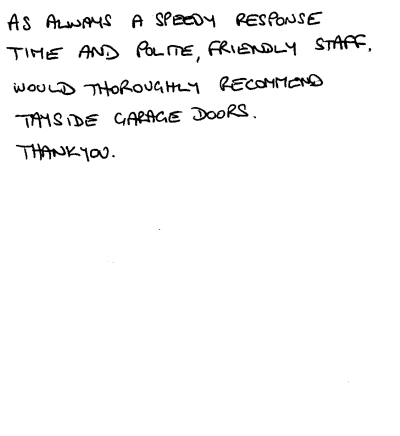 AS ALWAYS A SPEEDY RESPONSE
TIME AND POLITE, FRIENDLY STAFF.
WOULD THOROUGHLY RECOMMEND
TAYSIDE GARAGE DOORS.
THANKYOU.